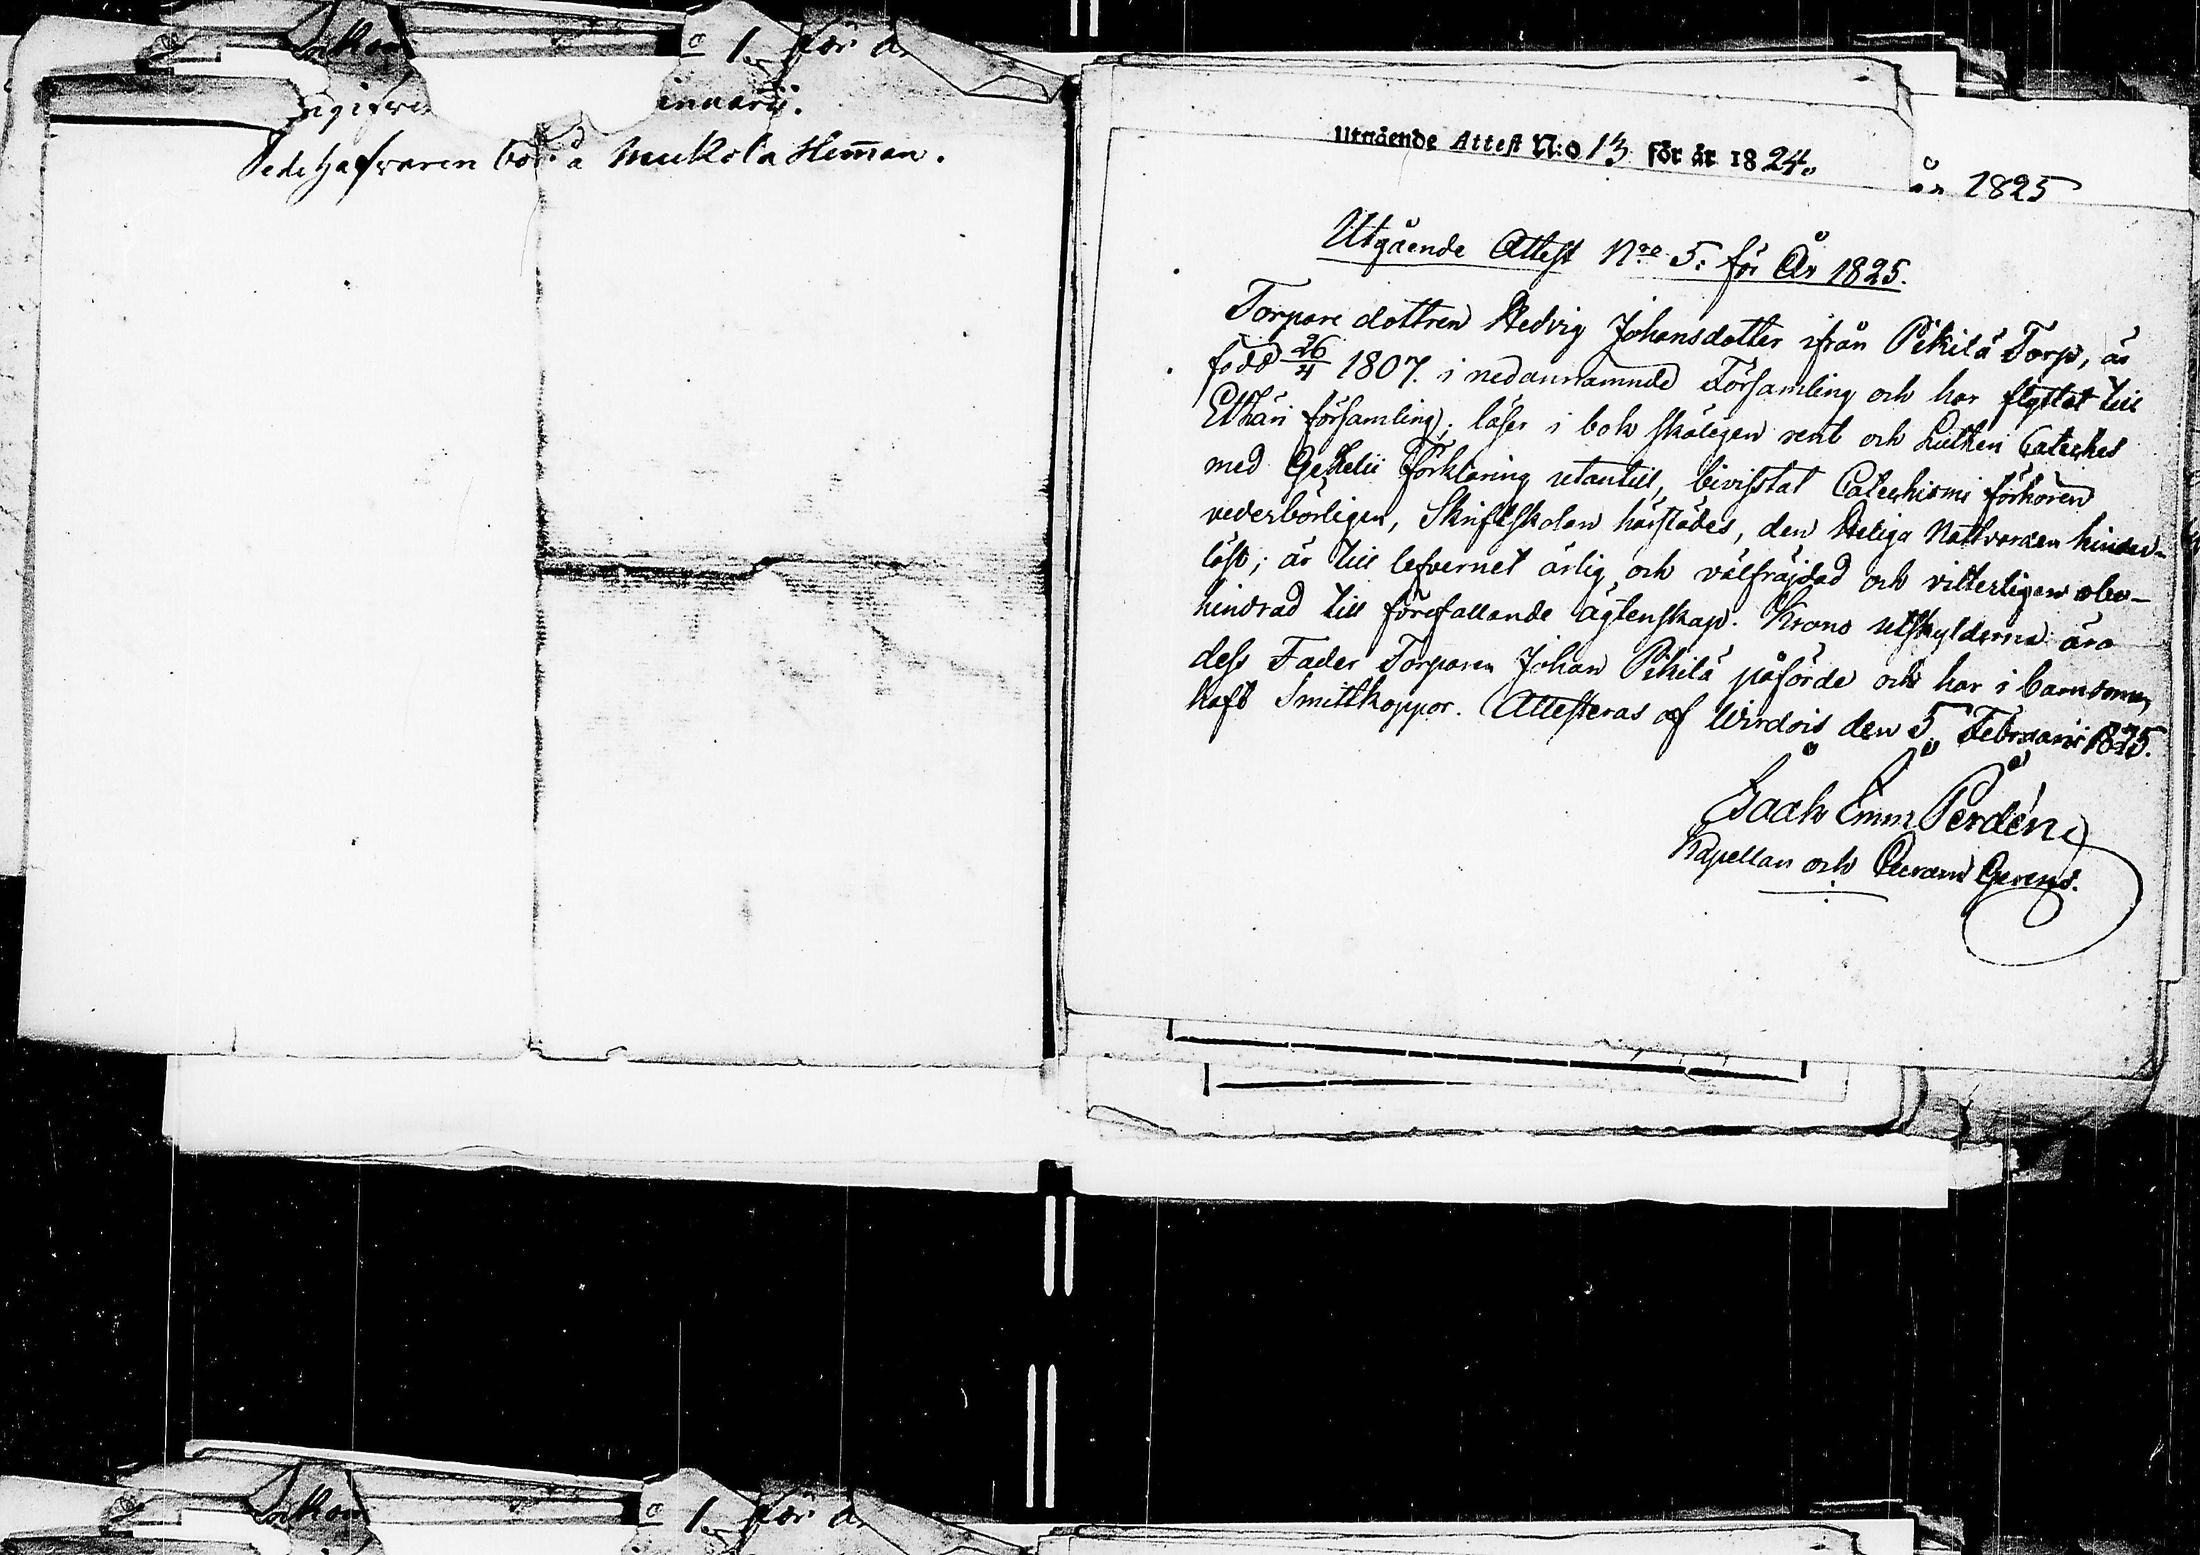 Inkom
o 1. för år
ngifve
anuarii.
Sedehafvaren bor å Muckola Hem̅an.
Utgående Attest N:o 13 för år 1824.
år 1825
Utgående Attest Nro 5. för År 1825.
Torpare dottren Hedvig Johansdotter ifrån Pikilä Torp, är
född 26/4 1807. i nedannamnde Församling och har flyttat till
Ethäri församling; läser i bok skäligen rent och Lutheri Cateches
med Gezelii Förklaring utantill, bivistat Catechismi förhören
vederbörligen, Skriftskolan härstädes, den Heliga Nattvarden hinder-
löst; är till lefvernet ärlig och välfräjdad och vitterligen obe-
hindrad till förefallande ägtenskap. Krono utskylderna äro
dess Fader Torparen Johan Pikilä påförde och har i barndomen
haft Smittkoppor. Attesteras af Wirdois den 5 Februarii 1825.
Isaak Emm. Perdén
Kapellan och Sacram